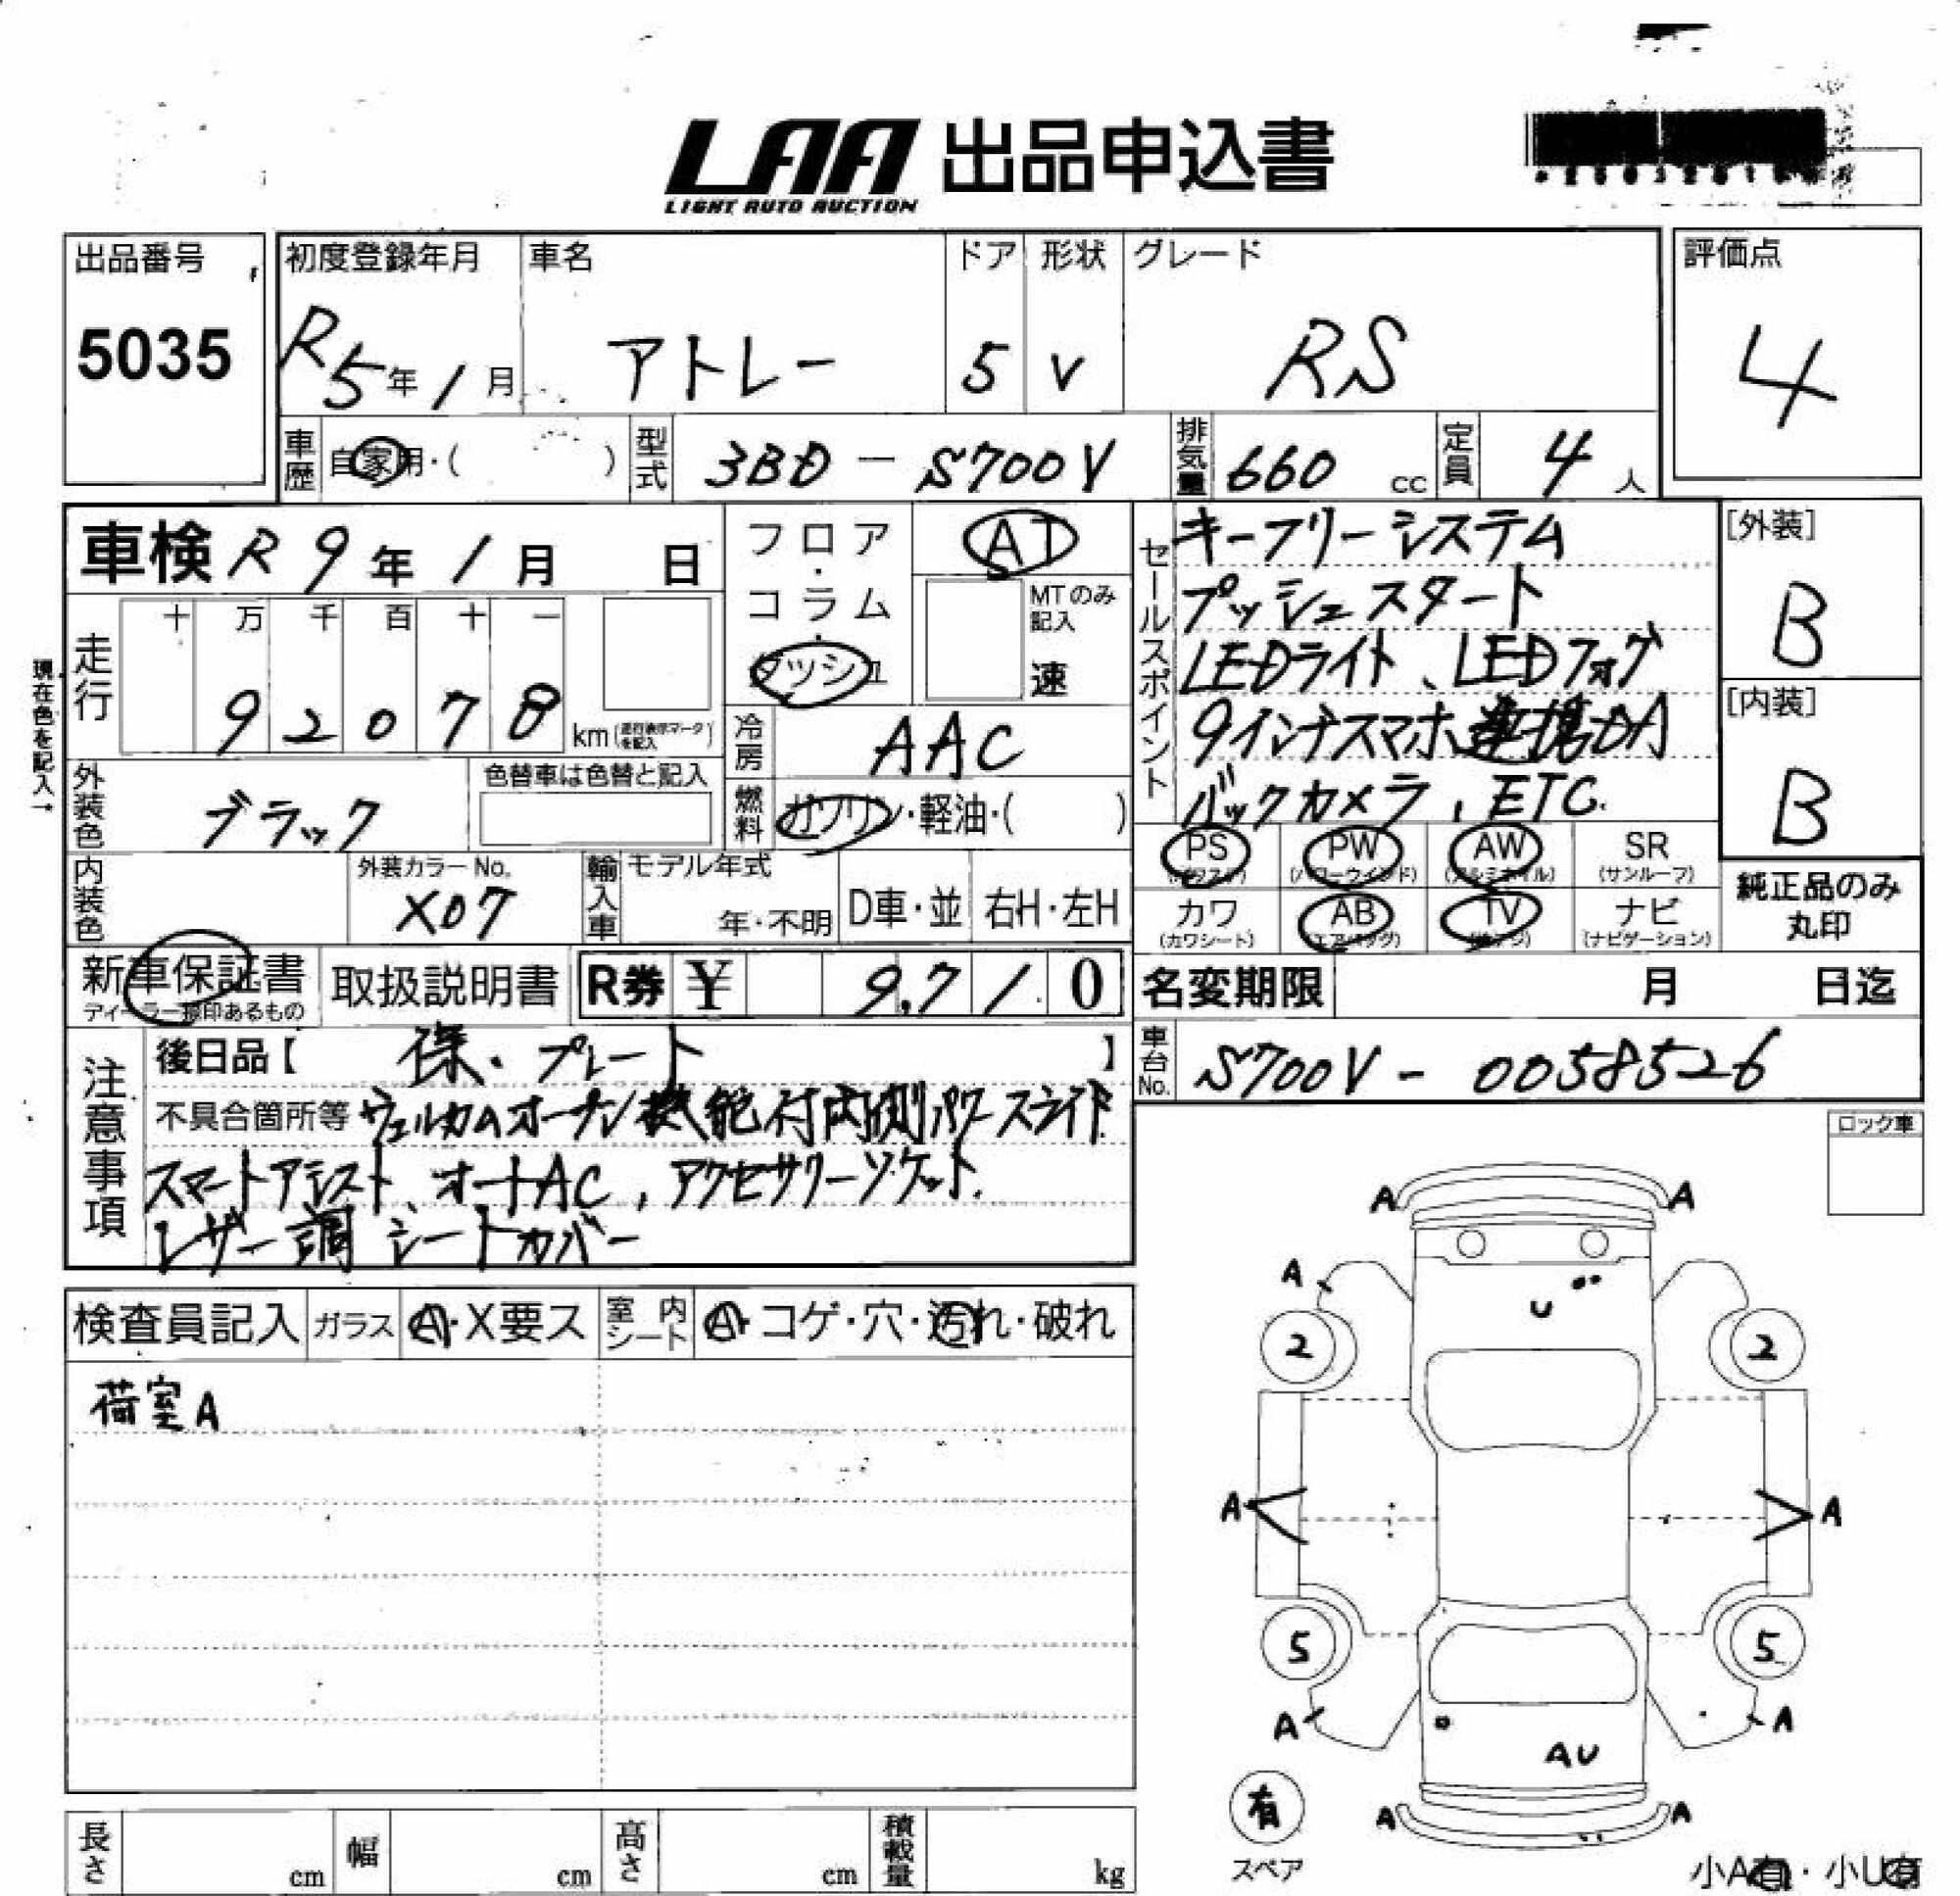 LAA 出品申込書
LIGHT AUTO AUCTION
出品番号
5035
初度登録年月
R5年1月
車名
アトレー
ドア
5
形状
V
グレード
RS
評価点
4
車歴 自家用・( )
型式 3BD-S700V
排気量 660 cc
定員 4人
車検 R9年1月 日
フロア・コラム・ダッシュ
AT
MTのみ記入
速
現在色を記入→
走行
十 万 千 百 十 一
9 2 0 7 8
km (走行表示マークを記入)
冷房 AAC
外装色 ブラック
色替車は色替と記入
燃料 ガソリン・軽油・( )
内装色
外装カラーNo.
X07
輸入車
モデル年式
年・不明
D車・並
右H・左H
セールスポイント
キーフリーシステム
プッシュスタート
LEDライト、LEDフォグ
9インチスマホ連携DA
バックカメラ、ETC.
[外装]
B
[内装]
B
PS (パワステ)
PW (パワーウインド)
AW (アルミホイル)
SR (サンルーフ)
カワ (カワシート)
AB (エアバッグ)
TV (テレビ)
ナビ (ナビゲーション)
純正品のみ丸印
新車保証書
ディーラー捺印あるもの
取扱説明書
R券 ¥ 9,710
名変期限 月 日迄
車台No. S700V-0058526
注意事項
後日品【 保、プレート 】
不具合箇所等 ウェルカムオープン機能付両側パワースライド
スマートアシスト、オートAC、アクセサリーソケット
レザー調シートカバー
ロック車
検査員記入
ガラス A・X要ス
室内シート A・コゲ・穴・汚れ・破れ
荷室A
A A
A
U
2 2
A A
5 5
A A
AU
有
スペア
A A
小A有・小U有
長さ cm
幅 cm
高さ cm
積載量 kg